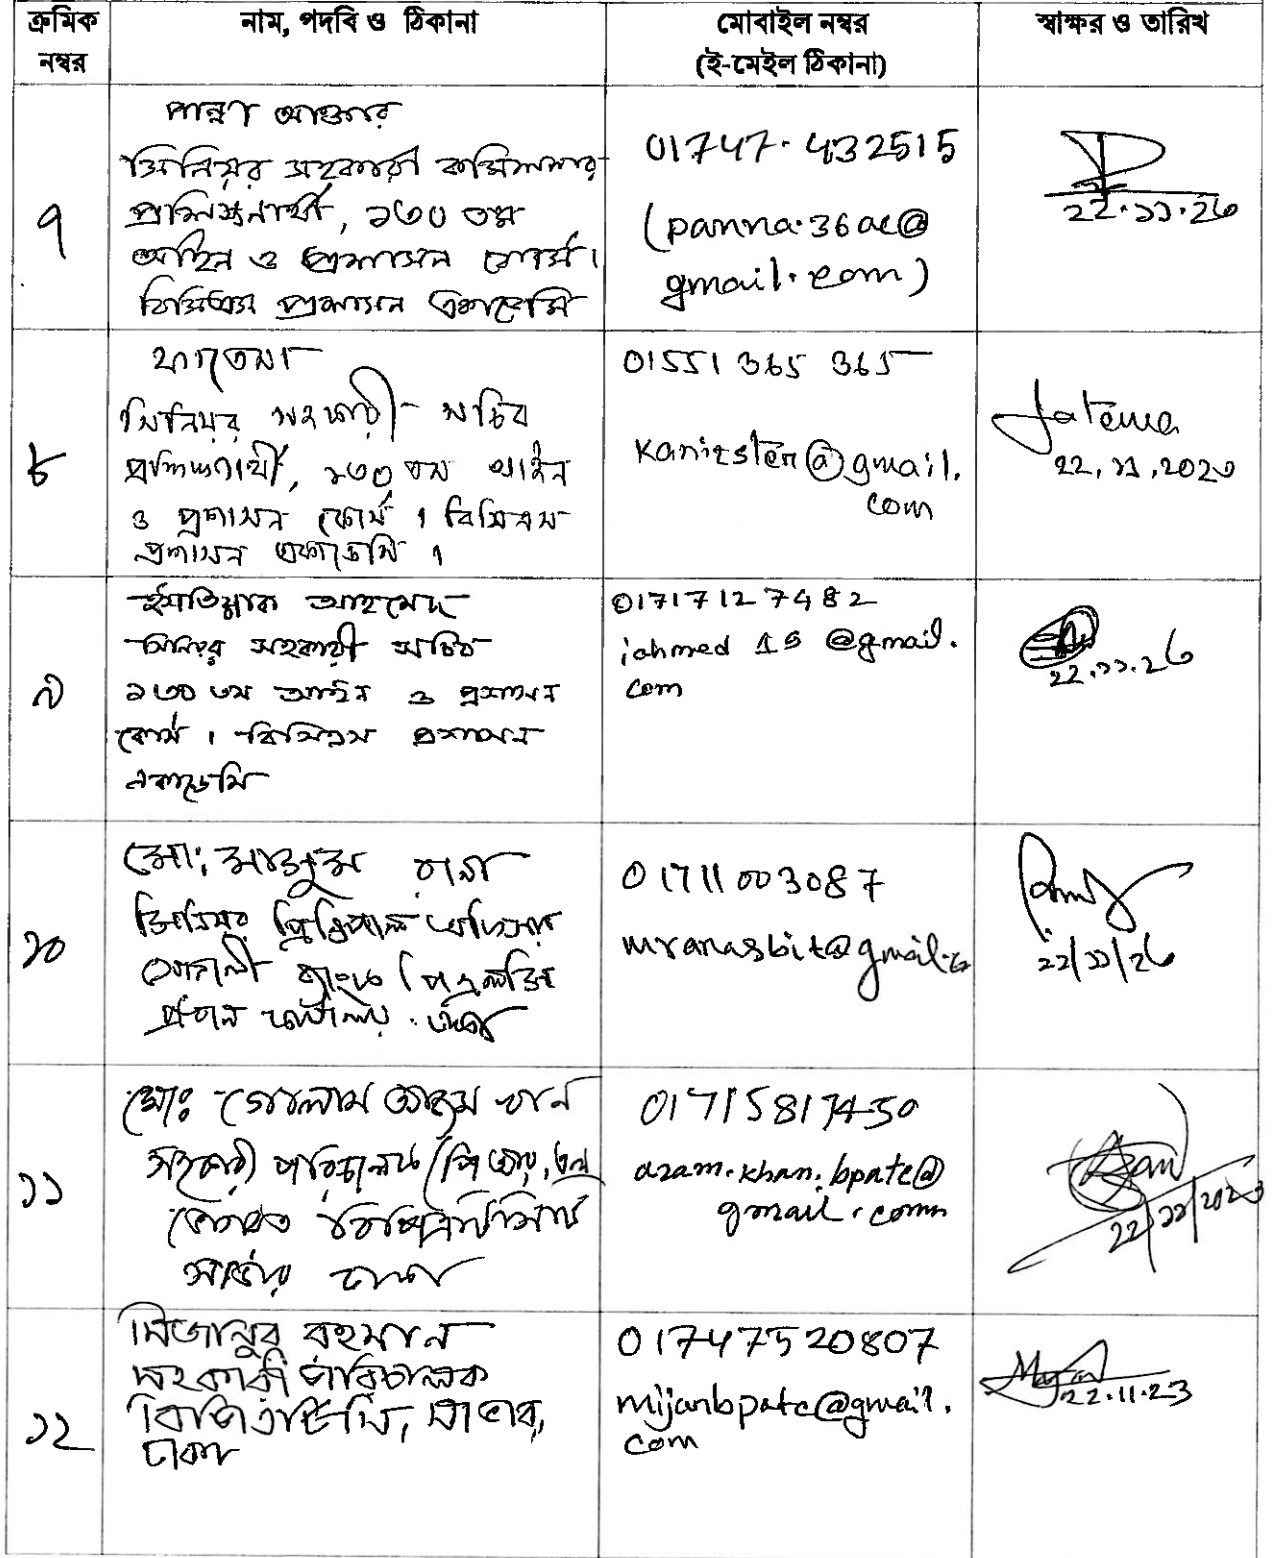 ক্রমিক নম্বর
নাম, পদবি ও ঠিকানা
মোবাইল নম্বর
(ই-মেইল ঠিকানা)
স্বাক্ষর ও তারিখ
৭
পান্না আক্তার
সিনিয়র সহকারী কমিশনার
প্রশিক্ষণার্থী, ১৩০ তম
আইন ও প্রশাসন কোর্স।
বিসিএস প্রশাসন একাডেমি
01747-432515
(panna.36ac@
gmail.com)
২২.১১.২৩
৮
ফাতেমা
সিনিয়র সহকারী সচিব
প্রশিক্ষণার্থী, ১৩০ তম আইন
ও প্রশাসন কোর্স । বিসিএস
প্রশাসন একাডেমি ।
01551 365 365
kanizster@gmail.
com
fatema
২২.১১.২০২৩
৯
ইশতিয়াক আহমেদ
সিনিয়র সহকারী সচিব
১৩০ তম আইন ও প্রশাসন
কোর্স । বিসিএস প্রশাসন
একাডেমি
01717127482
iahmed 15 @gmail.
com
২২.১১.২৩
১০
মো: মাসুম রানা
সিনিয়র প্রিন্সিপাল অফিসার
সোনালী ব্যাংক পিএলসি
প্রধান কার্যালয়. ঢাকা
01711003087
mranasbit@gmail.co
২২/১১/২৩
১১
মোঃ গোলাম আজম খান
সহকারী পরিচালক
সাভার ঢাকা
01715817430
azam.khan.bpatc@
gmail.comm
২২/১১/২০২৩
১২
মিজানুর রহমান
সহকারী পরিচালক
বিপিএটিসি, সাভার,
ঢাকা
01747520807
mijanbpatc@gmail.
com
22.11.23